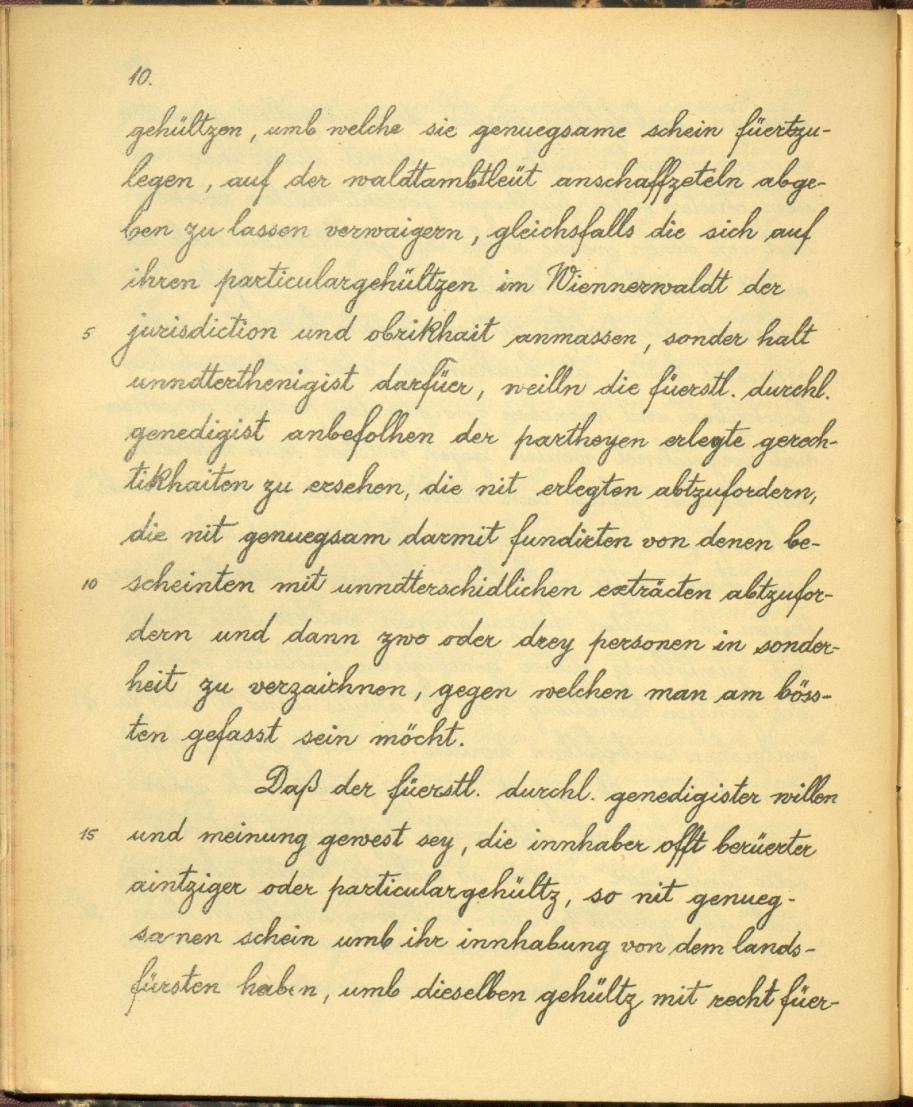 10.
gehültzen, umb welche sie genuegsame schein füertzu-
legen, auf der waldtambtleüt anschaffzeteln abge-
ben zu lassen verwaigern, gleichsfalls die sich auf
ihren particulargehültzen im Wiennerwaldt der
5 jurisdiction und obrikhait anmassen, sonder halt
unndterthenigist darfüer, weilln die füerstl. durchl.
genedigist anbefolhen der partheyen erlegte gerech-
tikhaiten zu ersehen, die nit erlegten abtzufordern,
die nit genuegsam darmit fundirten von denen be-
10 scheinten mit unndterschidlichen exträcten abtzufor-
dern und dann zwo oder drey personen in sonder-
heit zu verzaichnen, gegen welchen man am böss-
ten gefasst sein möcht.
Daß der füerstl. durchl. genedigister willen
15 und meinung gewest sey, die innhaber offt berüerter
aintziger oder particulargehültz, so nit genueg-
samen schein umb ihr innhabung von dem lands-
fürsten haben, umb dieselben gehültz mit recht füer-